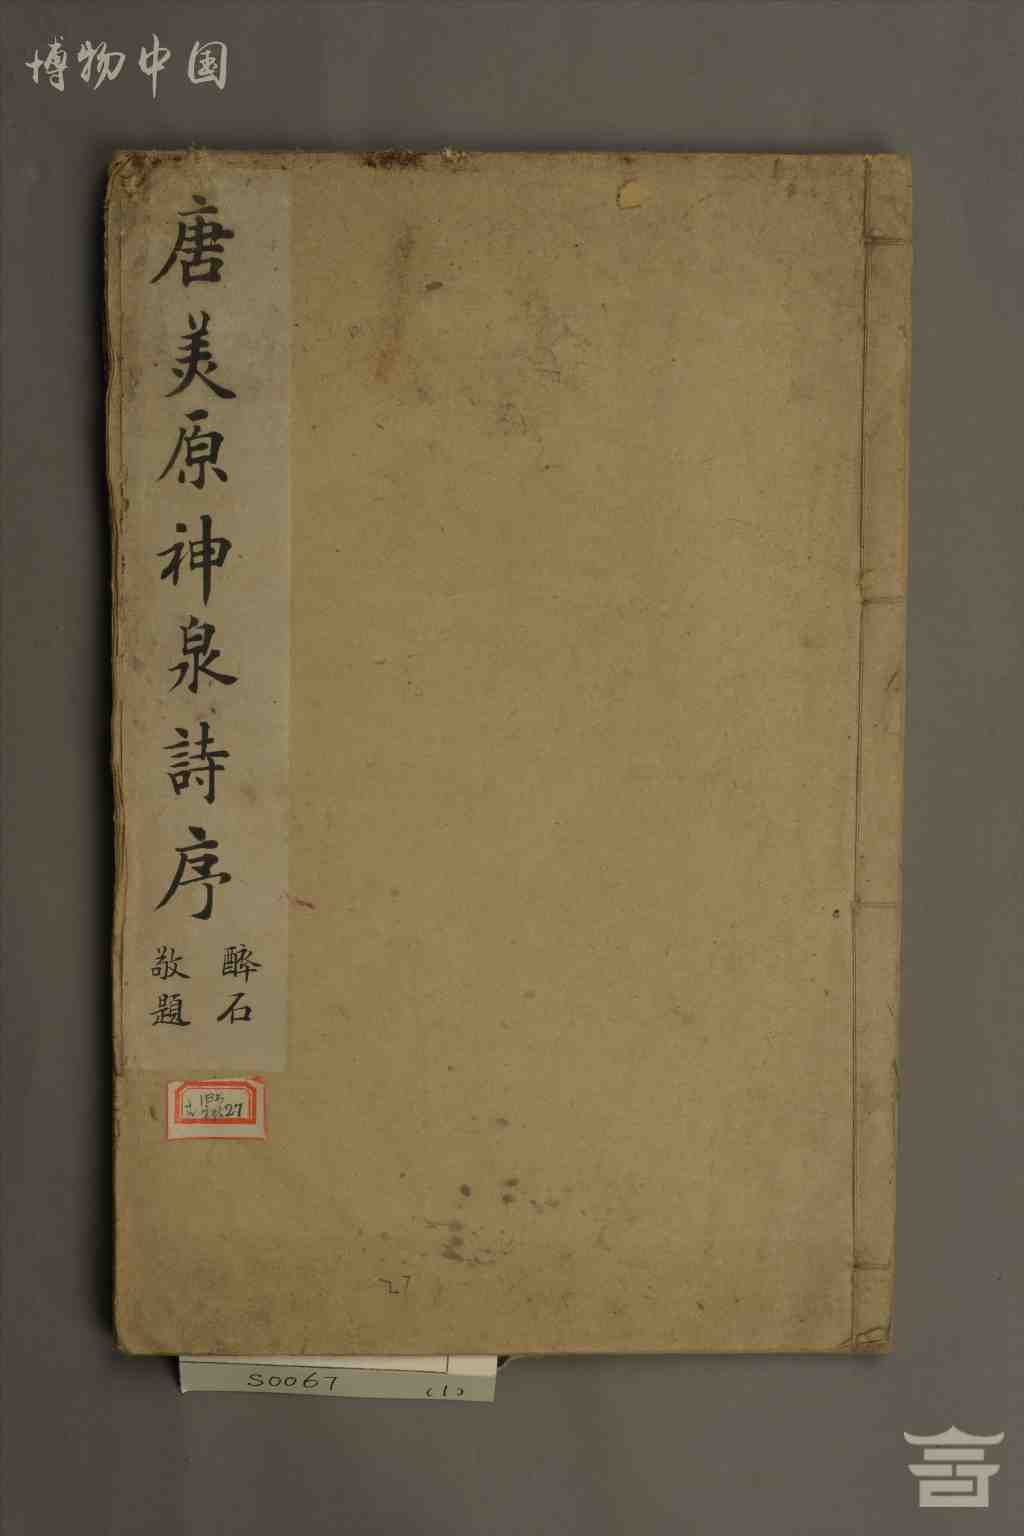 博物中国
唐美原神泉詩序
醉石
敬題
27
S0067 (1)